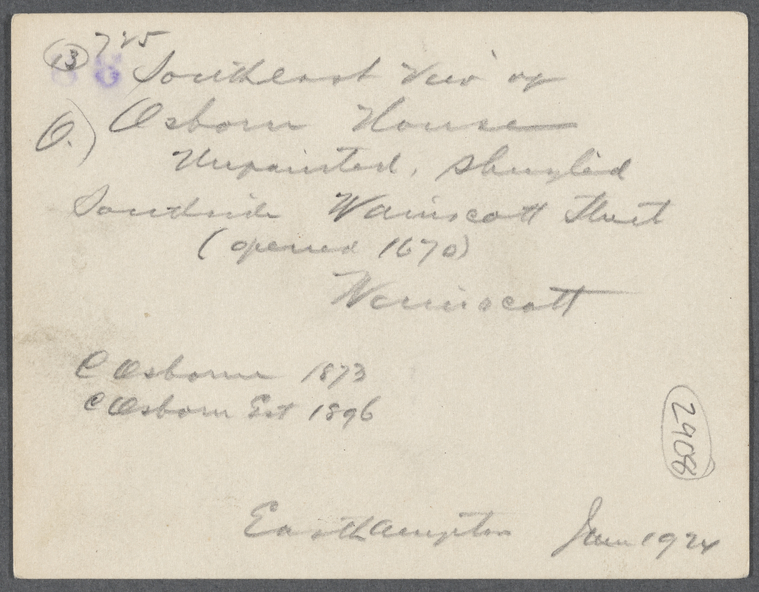 13 725
Southeast View of
O.) Osborn House
Unpainted, shingled
Southside Wainscott Street
(opened 1670)
Wainscott
C Osborne 1873
C Osborn Est 1896
2908
Easthampton June 1924